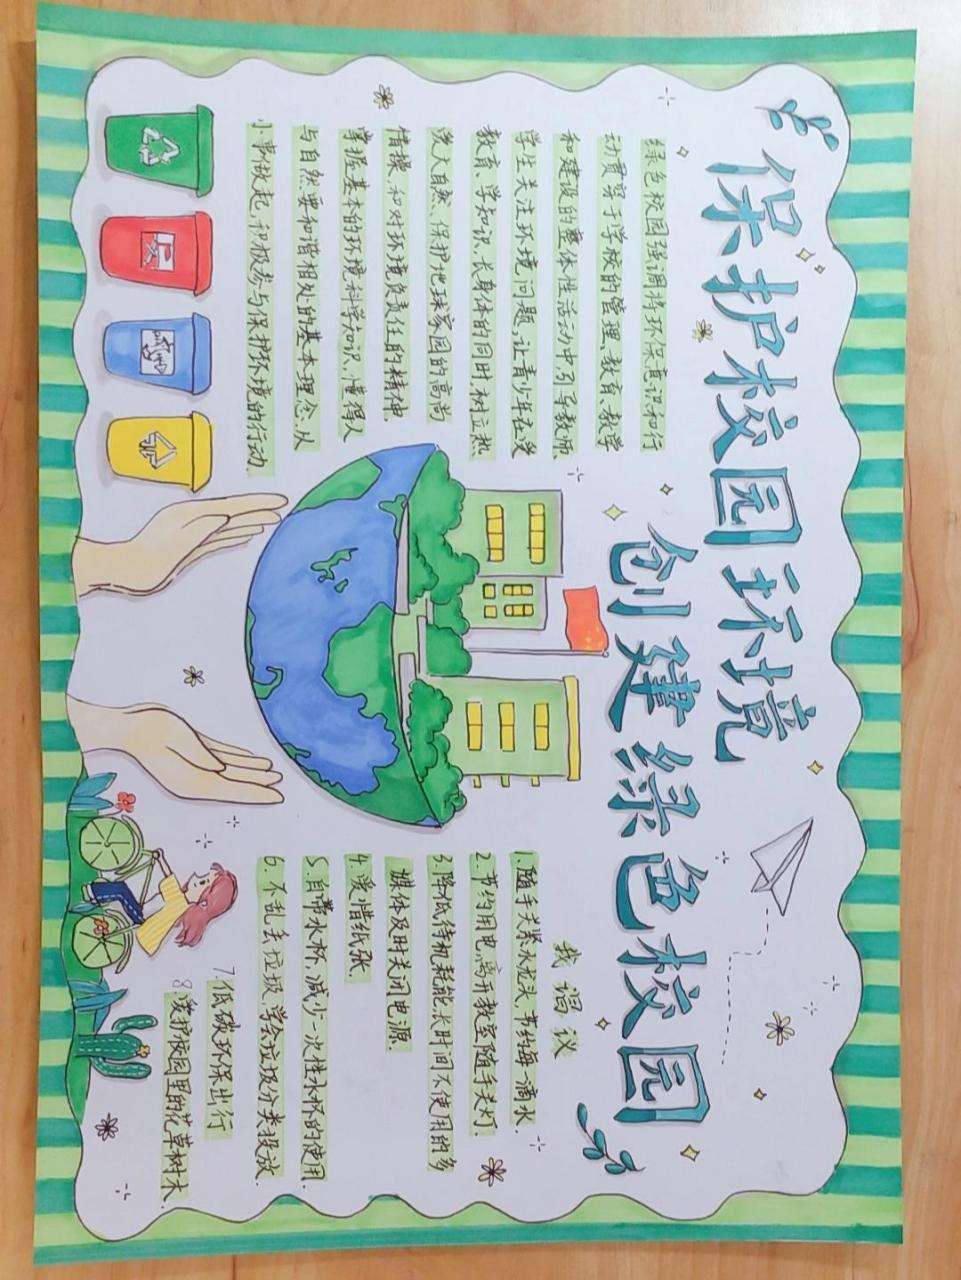 保护校园环境
创建绿色校园
绿色校园强调将环保意识和行
动贯穿于学校的管理、教育、教学
和建设的整体性活动中,引导教师、
学生关注环境问题,让青少年在受
教育、学知识、长身体的同时,树立热
爱大自然、保护地球家园的高尚
情操和对环境负责任的精神,
掌握基本的环境科学知识,懂得人
与自然要和谐相处的基本理念,从
小事做起,积极参与保护环境的行动.
我倡议
1.随手关紧水龙头,节约每一滴水.
2.节约用电,离开教室随手关灯.
3.降低待机耗能,太时间不使用的多
媒体及时关闭电源.
4.爱惜纸张.
5.自带水杯,减少一次性水杯的使用.
6.不乱丢垃圾,学会垃圾分类投放.
7.低碳环保出行
8.爱护校园里的花草树木